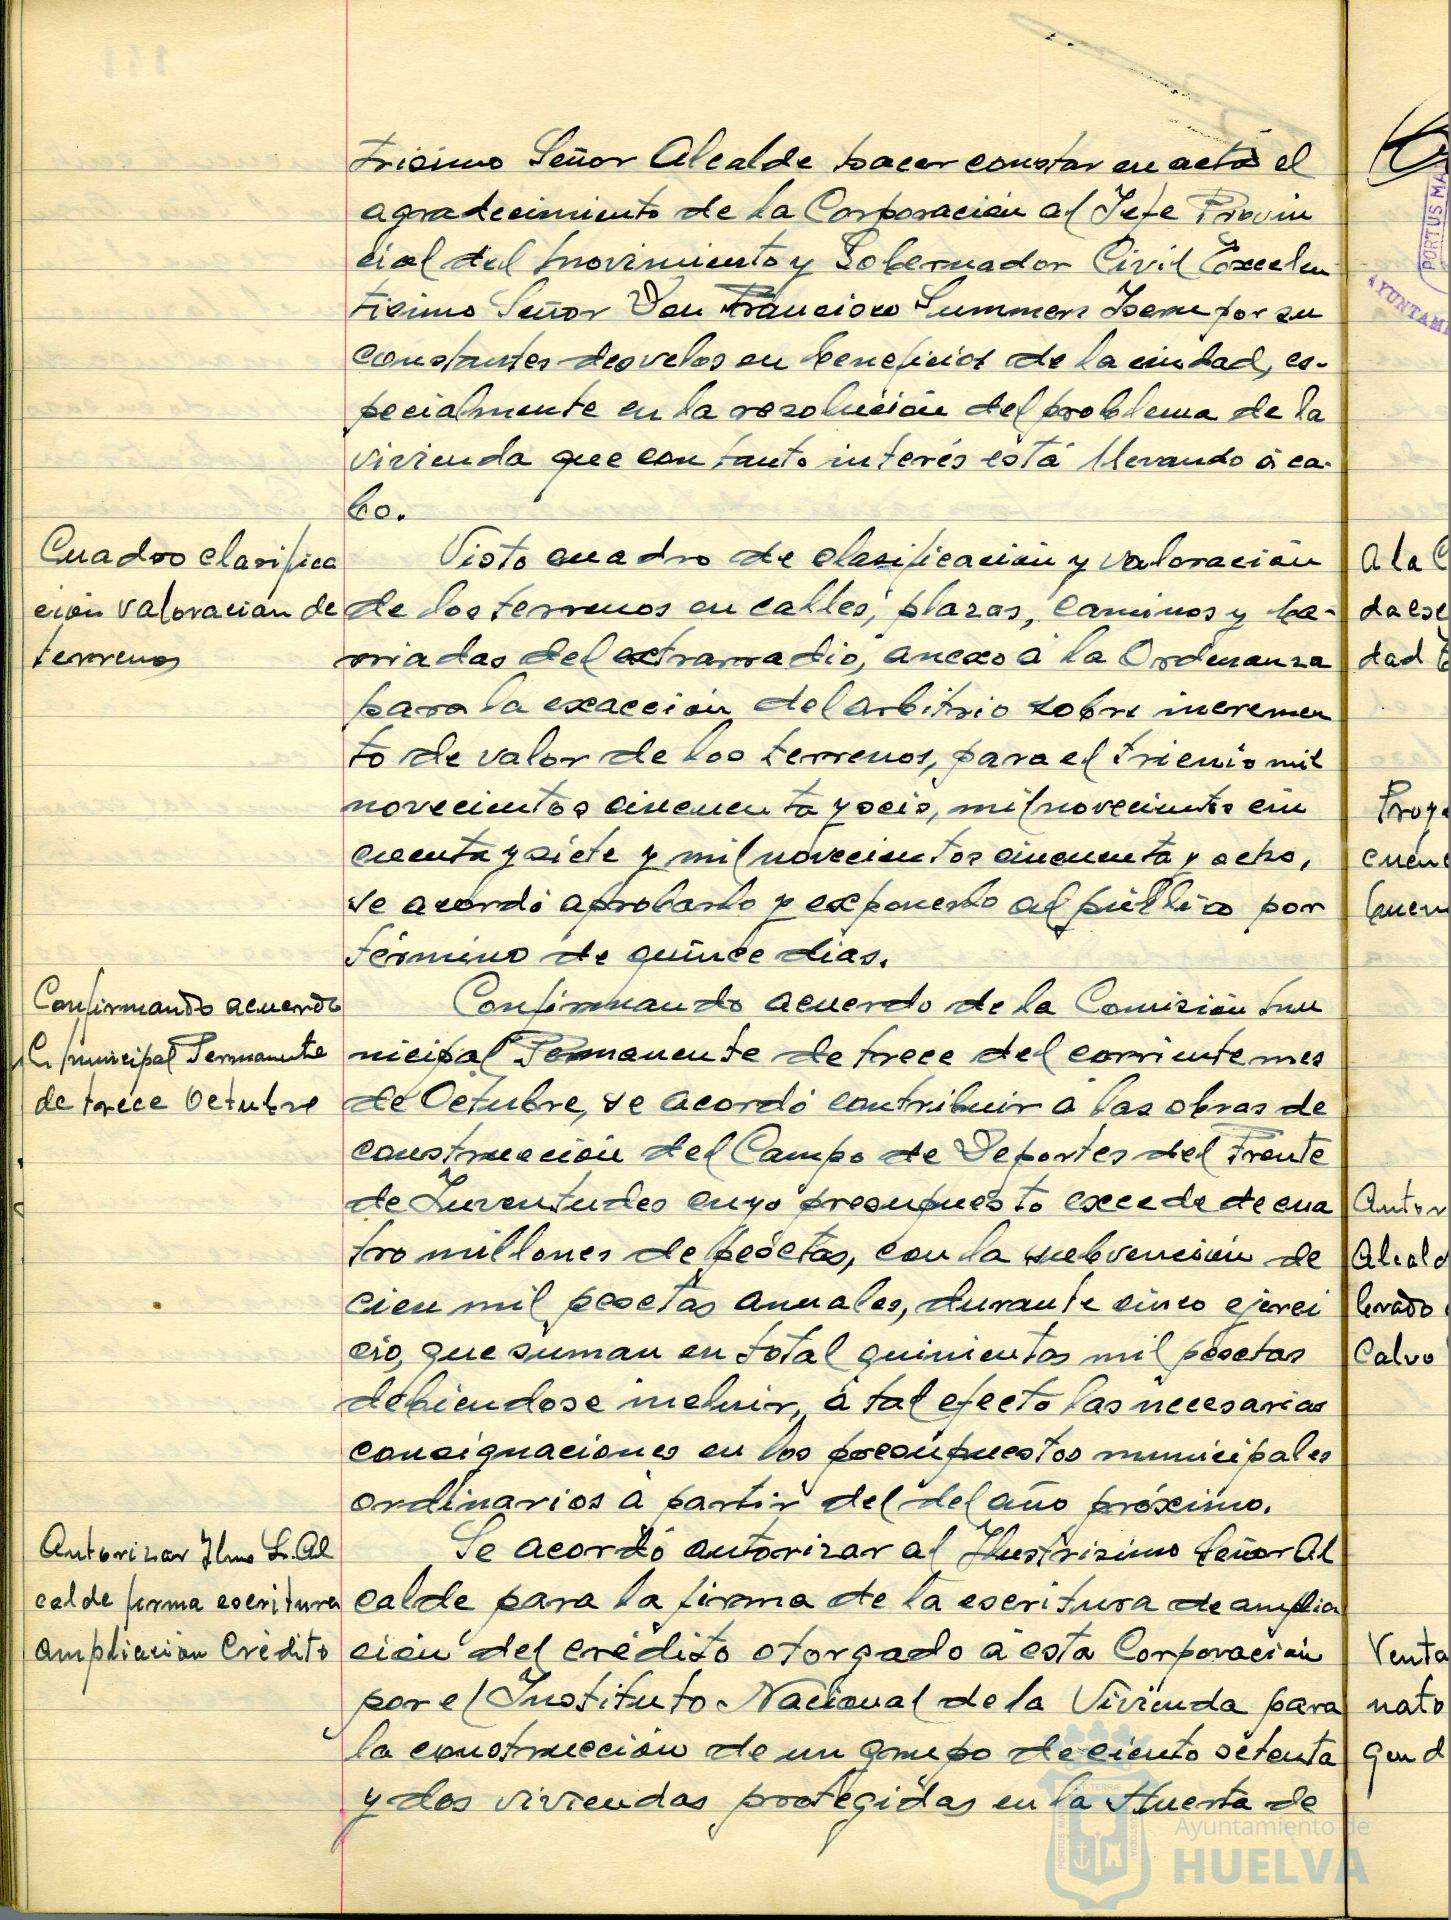 trisimo Señor Alcalde hacer constar en acta el
agradecimiento de la Corporación al Jefe Provin
cial del Movimiento y Gobernador Civil Excelen
tisimo Señor Don Francisco Summers Isern por su
constantes desvelos en beneficios de la ciudad, es-
pecialmente en la resolución del problema de la
vivienda que con tanto interés está llevando á ca-
bo.
Cuadro clasifica
ción valoracion de
terrenos
Visto cuadro de clasificación y valoración
de los terrenos en calles, plazas, caminos y ba-
rriadas del extrarradio, anexo á la Ordenanza
para la exacción del arbitrio sobre incremen
to de valor de los terrenos, para el trienio mil
novecientos cincuenta y seis, mil novecientos cin
cuenta y siete y mil novecientos cincuenta y ocho,
se acordó aprobarlo y exponerlo al público por
término de quince dias.
Confirmando acuerdo
C. Municipal Permanente
de trece Octubre
Confirmando acuerdo de la Comisión Mu
nicipal Permanente de trece del corriente mes
de Octubre, se acordó contribuir á las obras de
construcción del Campo de Deportes del Frente
de Juventudes cuyo presupuesto excede de cua
tro millones de pesetas, con la subvención de
cien mil pesetas anuales, durante cinco ejerci
cio, que suman en total quinientas mil pesetas
debiendose incluir, á tal efecto las necesarias
consignaciones en los presupuestos municipales
ordinarios á partir del del año próximo.
Autorizar Ilmo Sr. Al
calde firma escritura
ampliación Crédito
Se acordó autorizar al Ilustrisimo Señor Al
calde para la firma de la escritura de amplia
ción del crédito otorgado á esta Corporación
por el Instituto Nacional de la Vivienda para
la construcción de un grupo de ciento setenta
y dos viviendas protegidas en la Huerta de
PORTUS MA
AYUNTAM
A la C
da ese
dad
Proye
cuen
buen
Autor
Alcald
brado
Calvo
Venta
nato
gen d
Ayuntamiento de
HUELVA